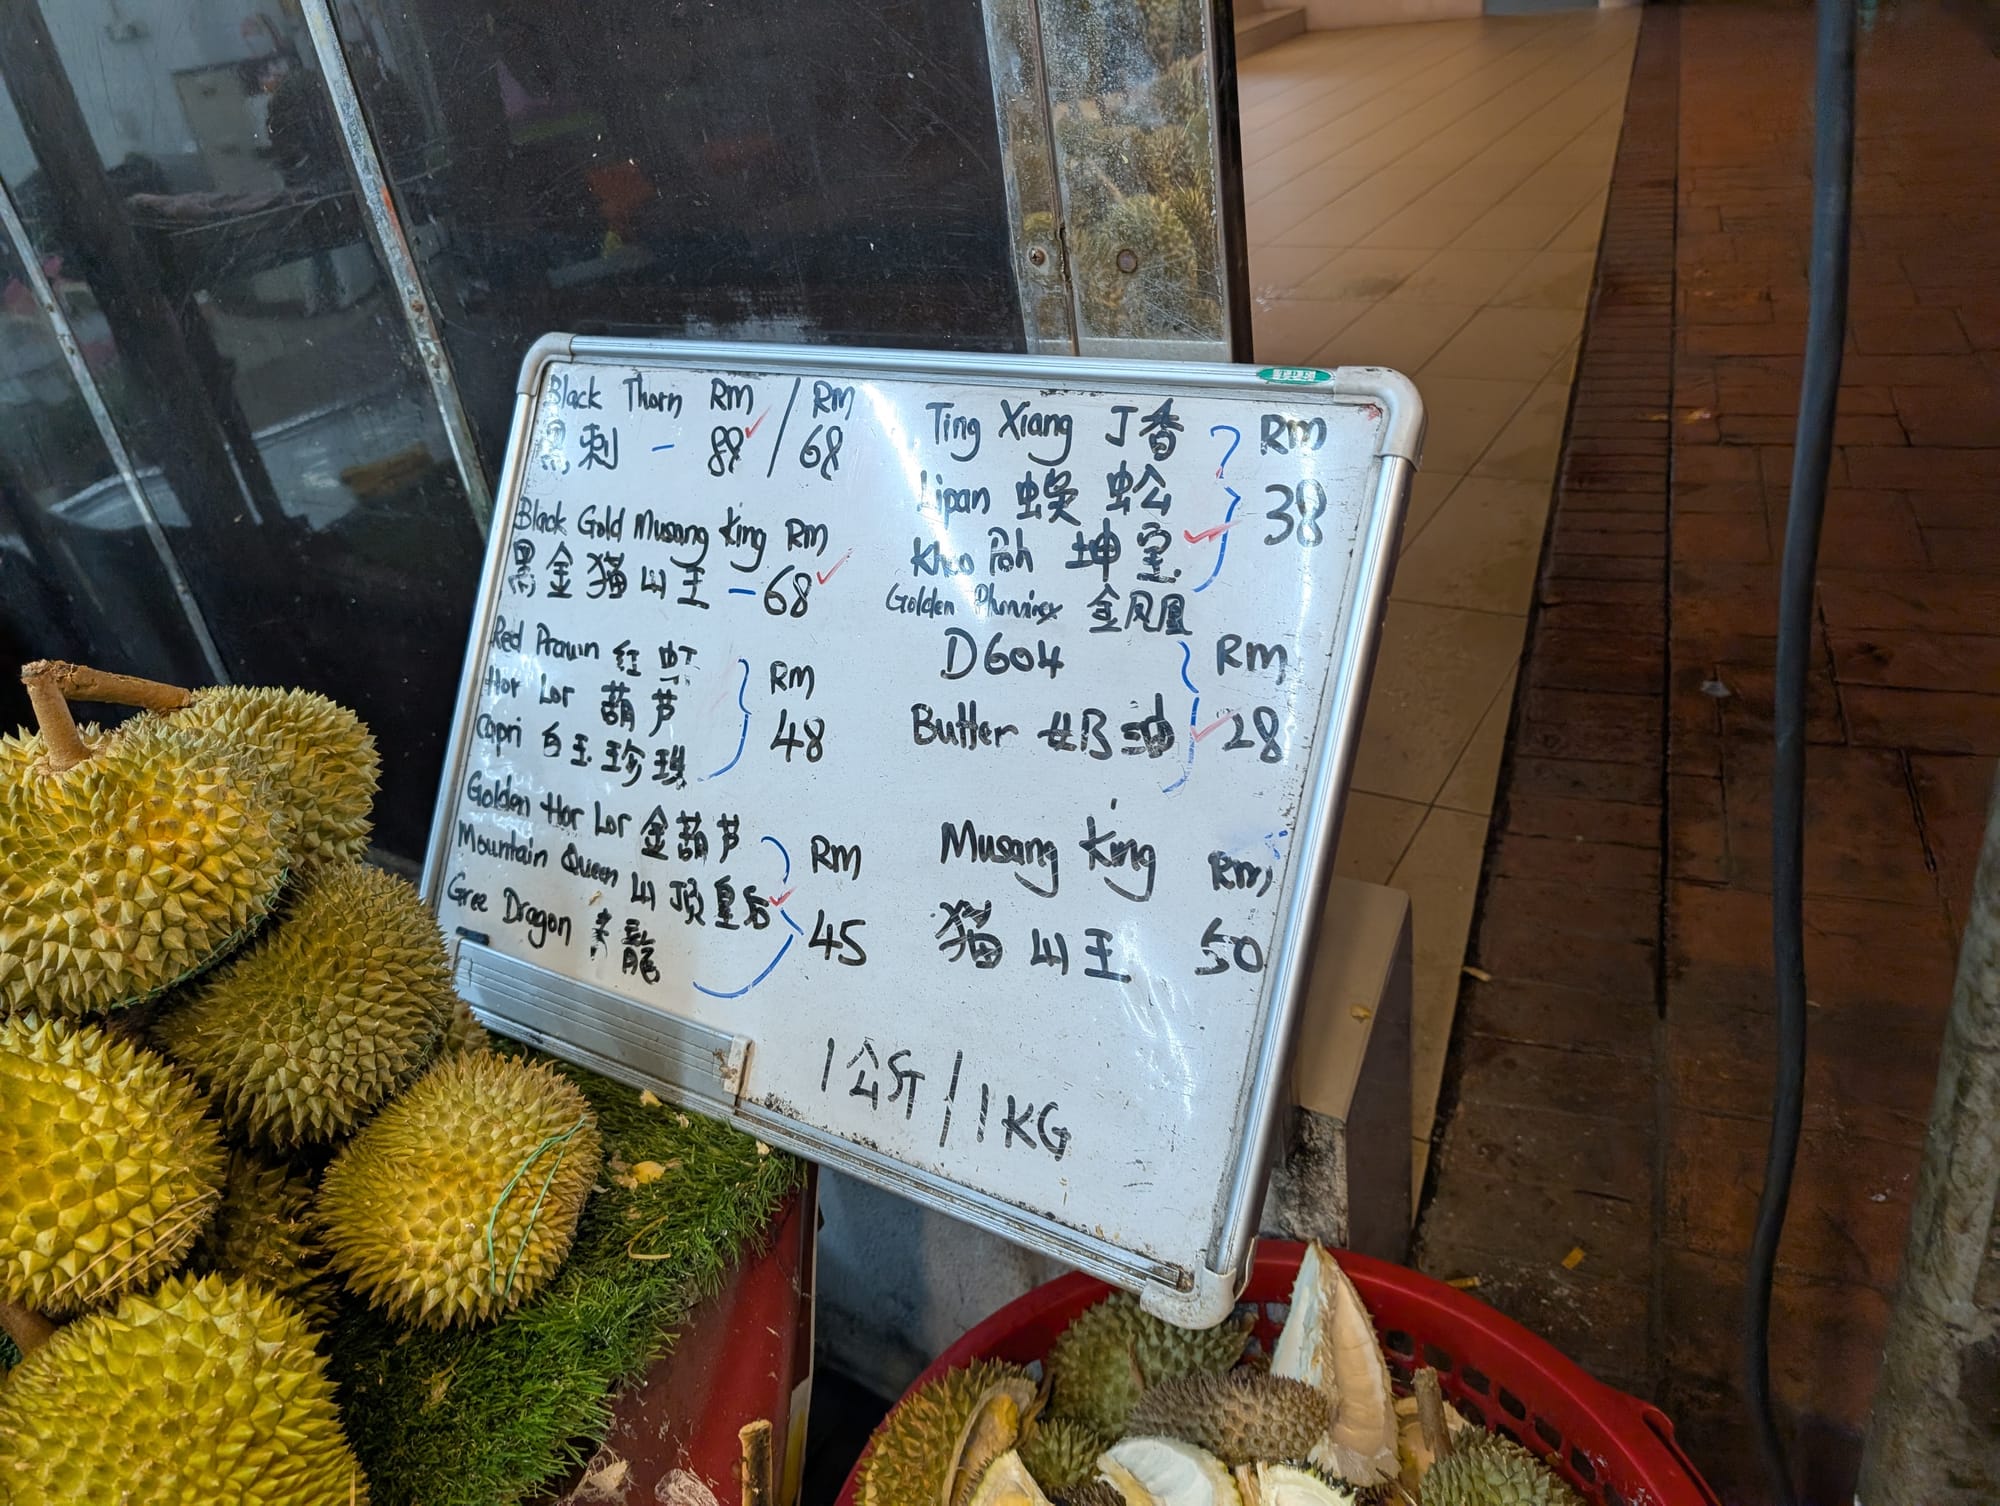 Black Thorn RM / RM
黑刺 - 88 / 68
Black Gold Musang King RM
黑金猫山王 - 68
Red Prawn 红虾
Hor Lor 葫芦
Capri 白玉珍珠
RM
48
Golden Hor Lor 金葫芦
Mountain Queen 山顶皇后
Gree Dragon 青龍
RM
45
TPE
Ting Xiang 丁香
Lipan 蜈蚣
Khun Poh 坤宝
Golden Phoniex 金凤凰
RM
38
D604
Butter 牛油
RM
28
Musang King RM
猫山王 50
1公斤 / 1KG